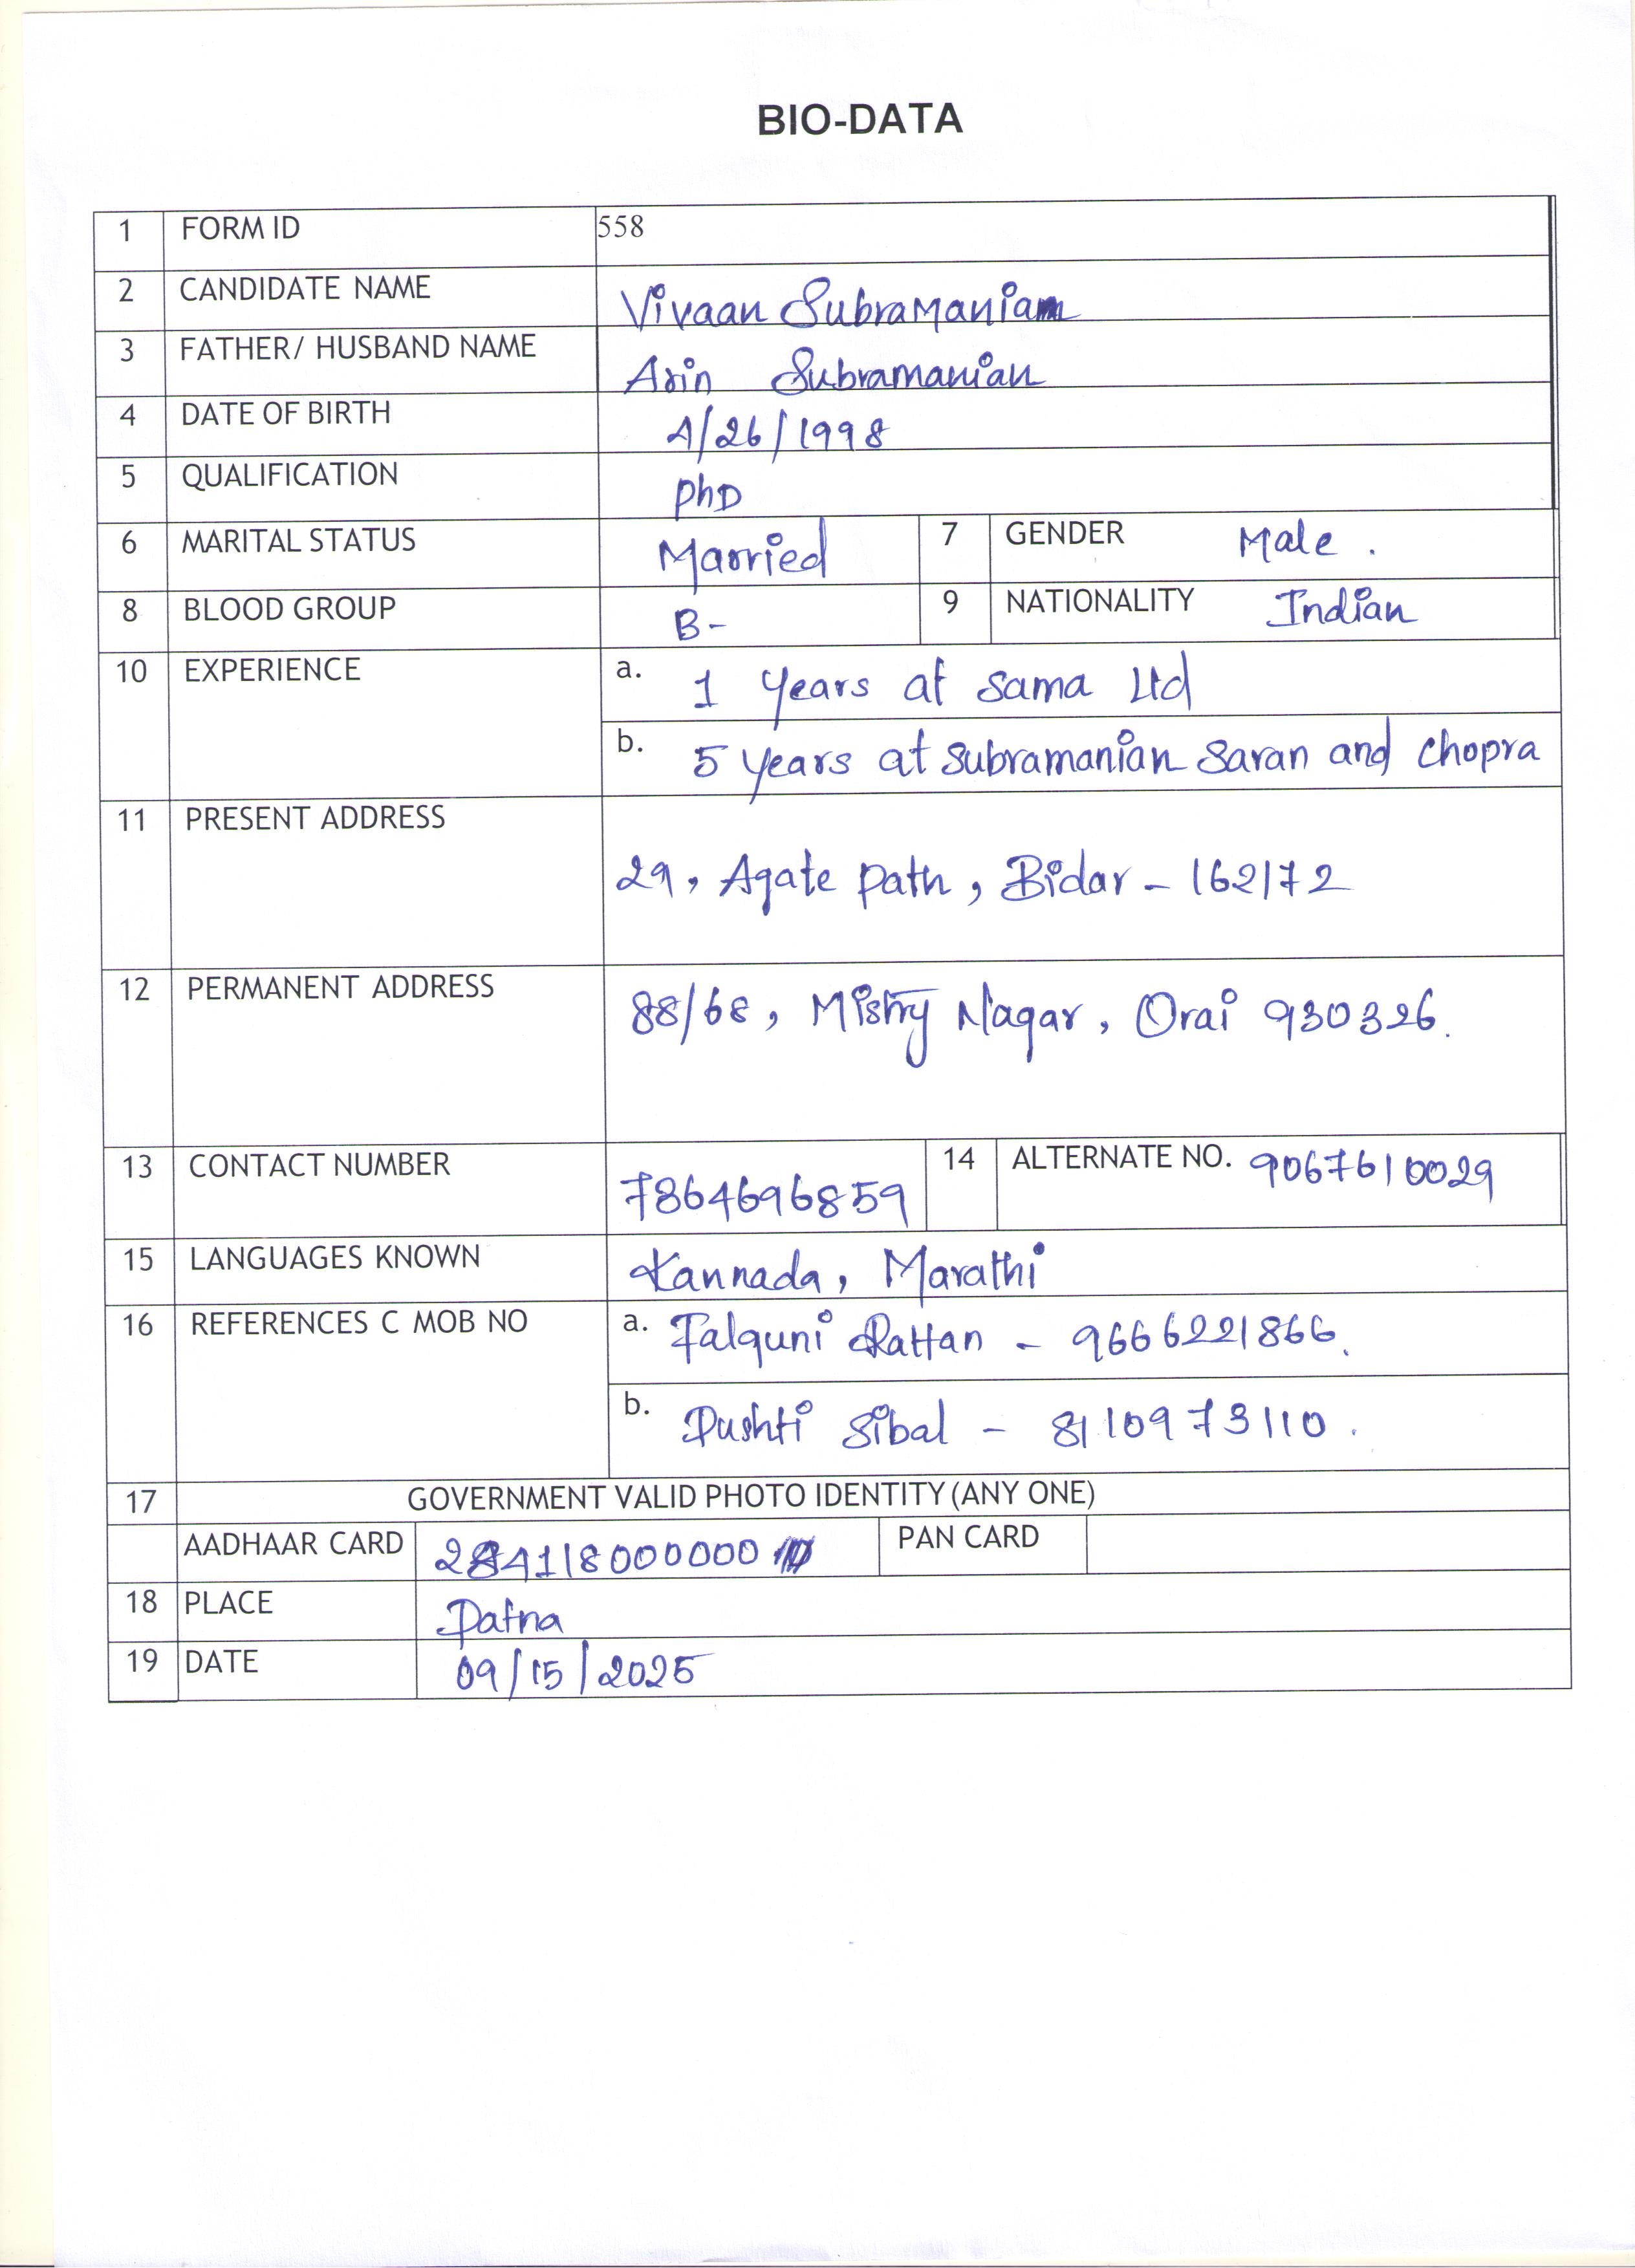 BIO-DATA
1 FORM ID 558
2 CANDIDATE NAME Vivaan Subramaniam
3 FATHER/ HUSBAND NAME Arin Subramanian
4 DATE OF BIRTH 4/26/1998
5 QUALIFICATION PhD
6 MARITAL STATUS Married 7 GENDER Male .
8 BLOOD GROUP B- 9 NATIONALITY Indian
10 EXPERIENCE a. 1 Years at Sama Ltd
b. 5 Years at Subramanian Saran and Chopra
11 PRESENT ADDRESS
29, Agate Path, Bidar - 162172
12 PERMANENT ADDRESS
88/68, Mistry Nagar, Orai 930326.
13 CONTACT NUMBER 7864696859 14 ALTERNATE NO. 9067610029
15 LANGUAGES KNOWN Kannada, Marathi
16 REFERENCES C MOB NO a. Falguni Rattan - 9666221866.
b. Pushti Sibal - 8110973110.
17 GOVERNMENT VALID PHOTO IDENTITY (ANY ONE)
AADHAAR CARD 284118000000 PAN CARD
18 PLACE Patna
19 DATE 09/15/2025